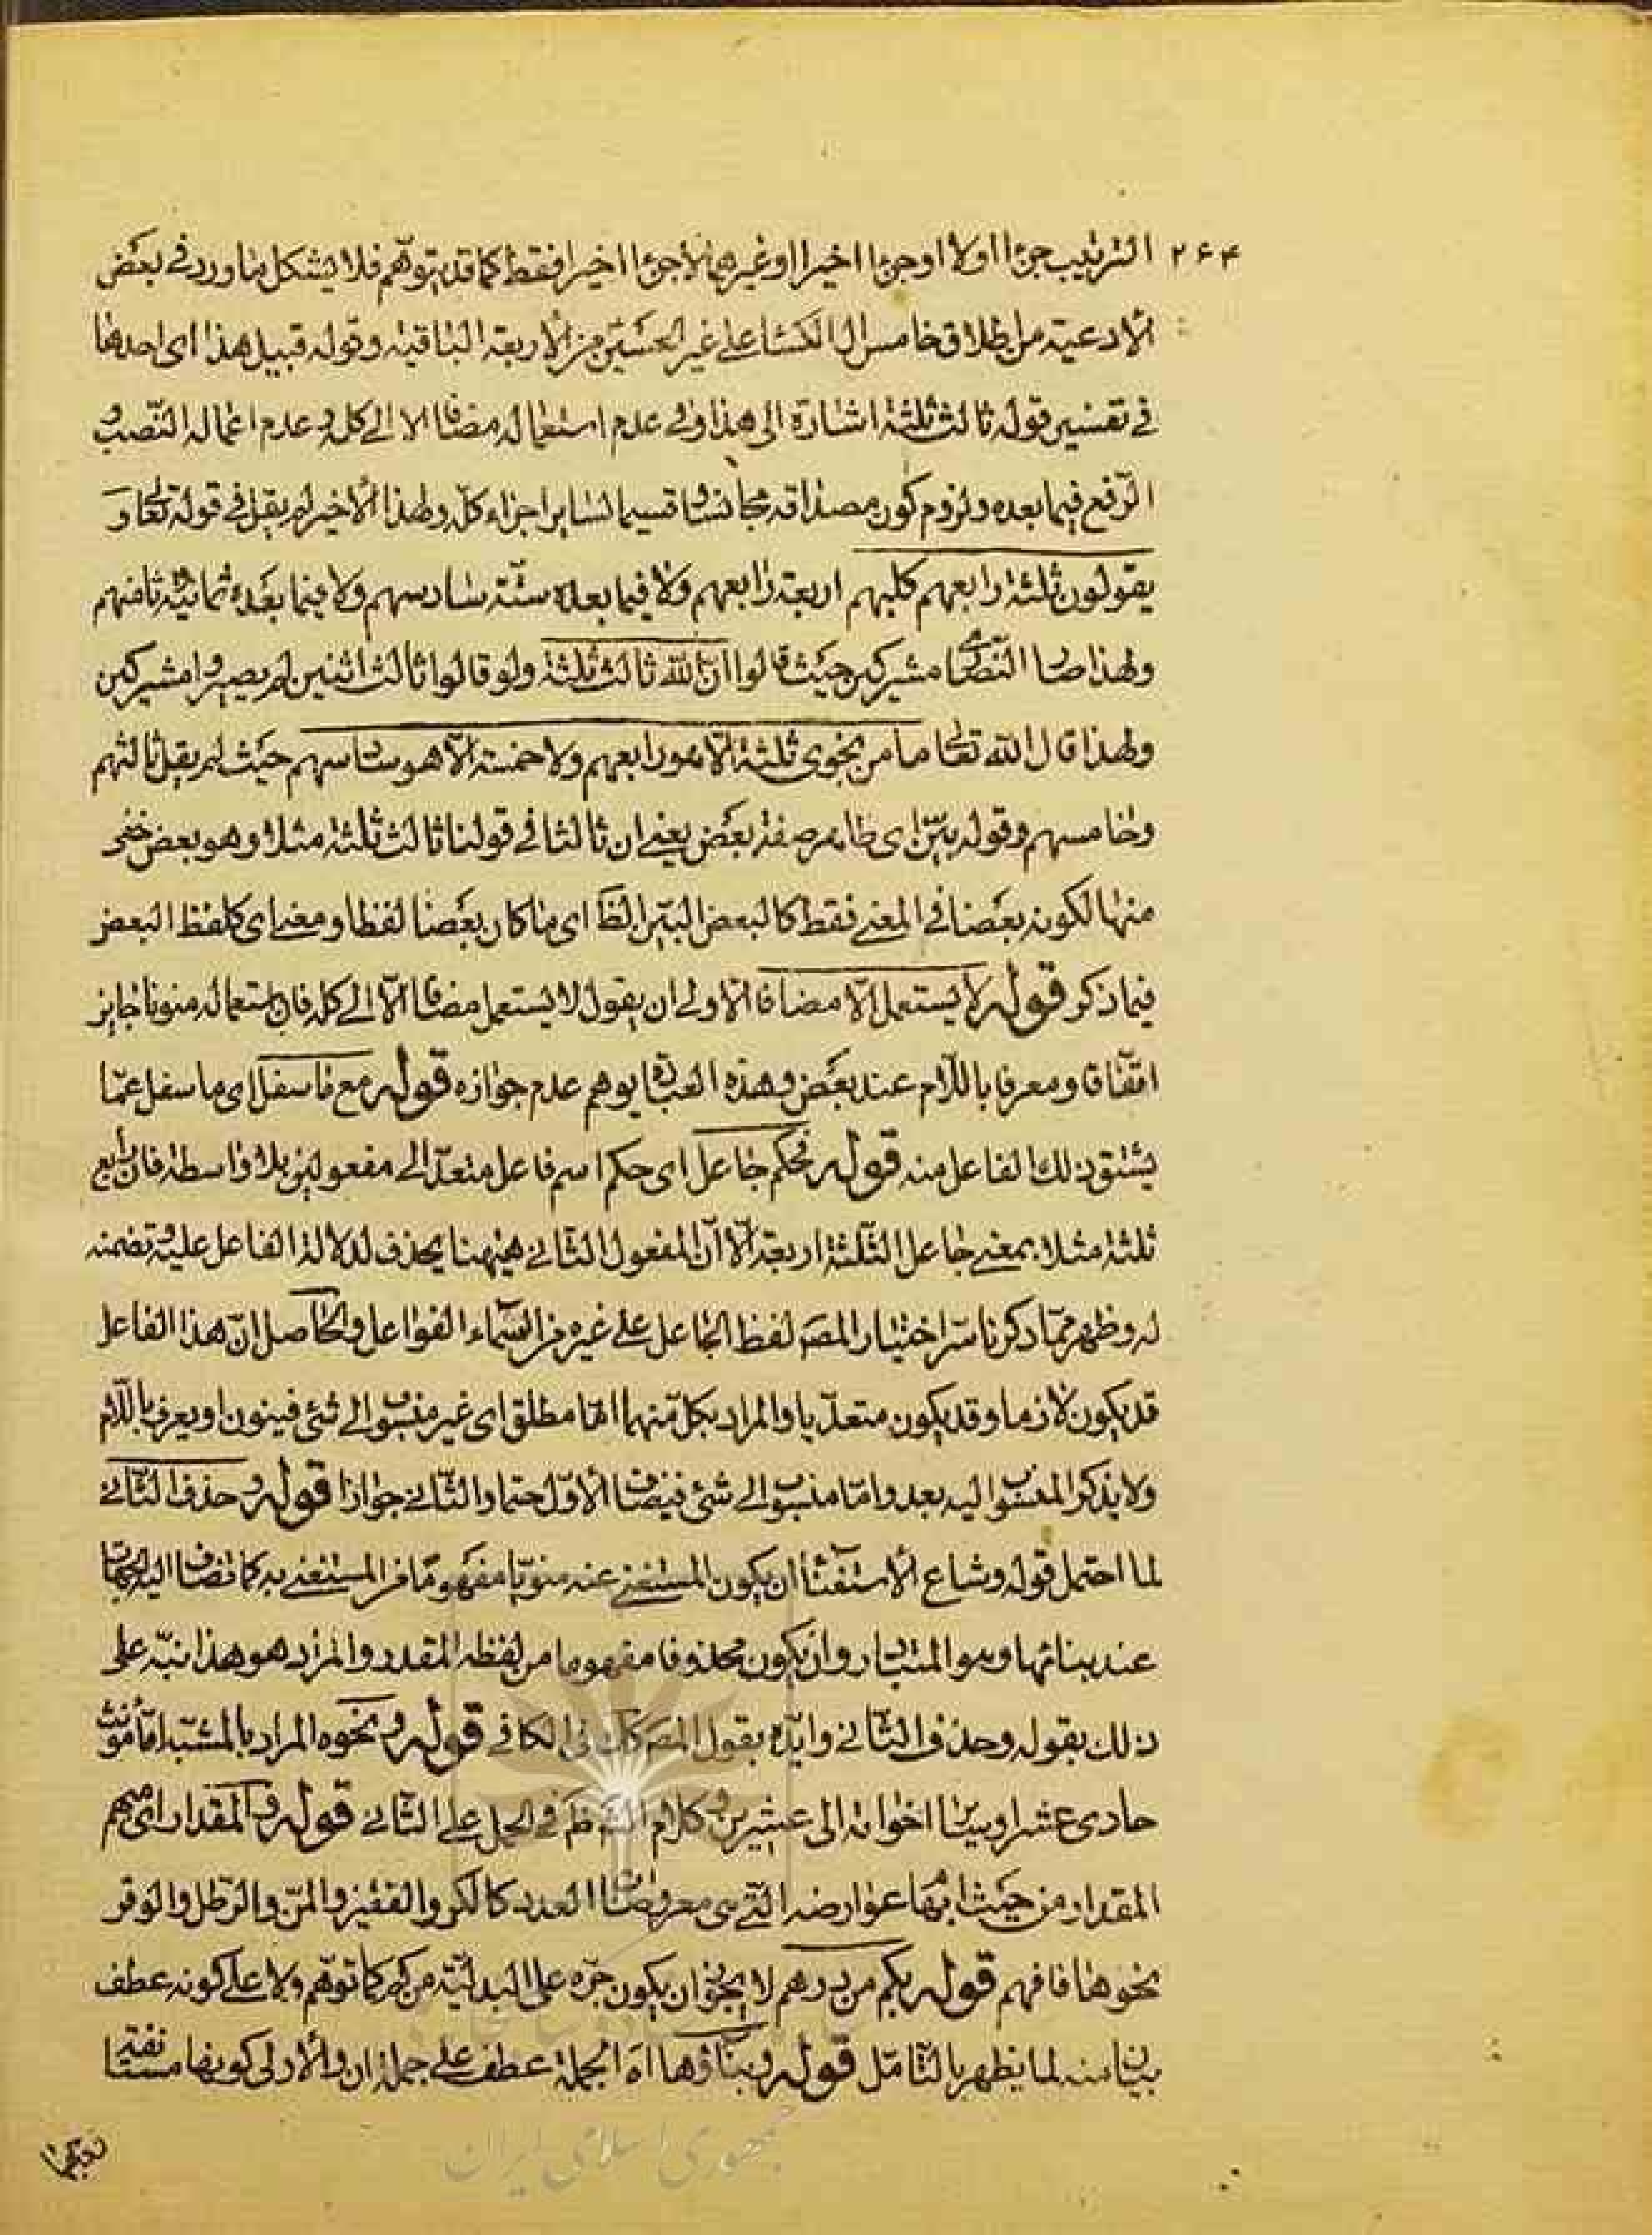 ٢۶۴ الترتیب جزءا اولا او جزءا اخیرا او غیرهما لا جزءا اخیرا فقط کما قد یتوهم فلا یشکل بما ورد فی بعض
الادعیة من اطلاق خامس ال الکساء علی غیر الحسین من الاربعة الباقیة وقوله قبیل هذا ای احدها
فی تفسیر قوله ثالث ثلثة اشارة الی هذا وفی عدم استعماله مضافا الا الی کله وعدم اعماله النصب و
الرفع فیما بعده ولزوم کون مصداقه مجانسا وقسیما لسایر اجزاء کله ولهذا الاخیر لم یقل فی قوله تعا و
یقولون ثلثة رابعهم کلبهم اربعة رابعهم ولا فیما بعده ستة سادسهم ولا فیما بعده ثمانیة ثامنهم
ولهذا صار النصاری مشرکین حیث قالوا ان الله ثالث ثلثة ولو قالوا ثالث اثنین لم یصیروا مشرکین
ولهذا قال الله تعا ما من نجوی ثلثة الا هو رابعهم ولا خمسة الا هو سادسهم حیث لم یقل ثالثهم
وخامسهم وقوله بین ای ظاهر صفة بعض یعنی ان ثالثا فی قولنا ثالث ثلثة مثلا وهو بعض خفی
منها لکونه بعضا فی المعنی فقط کالبعض البین الظ ای ما کان بعضا لفظا ومعنی ای کلفظ البعض
فیما ذکر قوله لا یستعمل الا مضافا الاولی ان یقول لا یستعمل مضافا الا الی کله فان استعماله منونا جایز
اتفاقا ومعرفا باللام عند بعض وهذه العبارة یوهم عدم جوازه قوله مع ما سفل ای ما سفل عما
یشتق ذلک الفاعل منه قوله فحکم جاعل ای حکم اسم فاعل متعد الی مفعولین بلا واسطة فان رابع
ثلثة مثلا بمعنی جاعل الثلثة اربعة الا ان المفعول الثانی هیهنا یحذف لدلالة الفاعل علیه وتضمنه
له وظهر مما ذکرنا سر اختیار المصر لفظ الجاعل علی غیره من اسماء الفواعل والحاصل ان هذا الفاعل
قد یکون لازما وقد یکون متعدیا والمراد بکل منهما اما مطلق ای غیر منسوب الی شئ فینون او یعرف باللام
ولا یذکر المنسوب الیه بعد واما منسوب الی شئ فیضاف الاول حتما والثانی جوازا قوله وحذف الثانی
لما احتمل قوله وشاع الاستغنا ان یکون المستغنی عنه منویا مفهوما من المستغنی به کما تضاف الیه الجهات
عند بنائها وهو المتبادر وان یکون محذوفا مفهوما من لفظه المقدر والمراد هو هذا نبه علی
ذلک بقوله وحذف الثانی وایده بقول المصر کک فی الکافی قوله ونحوه المراد بالمشبه اما مؤنث
حادی عشر او بیان اخواته الی عشرین وکلام الشر ظ فی الحمل علی الثانی قوله والمقدار ای مبهم
المقدار من حیث ابهام عوارضه التی هی معروضات العدد کالکر والقفیز والمن والرطل والوقر
نحوها فافهم قوله بکم من درهم لا یجوز ان یکون جره علی البدلیة من کم کما توهم ولا علی کونه عطف
بیان منه لما یظهر بالتامل قوله وبناؤها اه الجملة عطف علی جملة ان والاولی کونها مستانفة